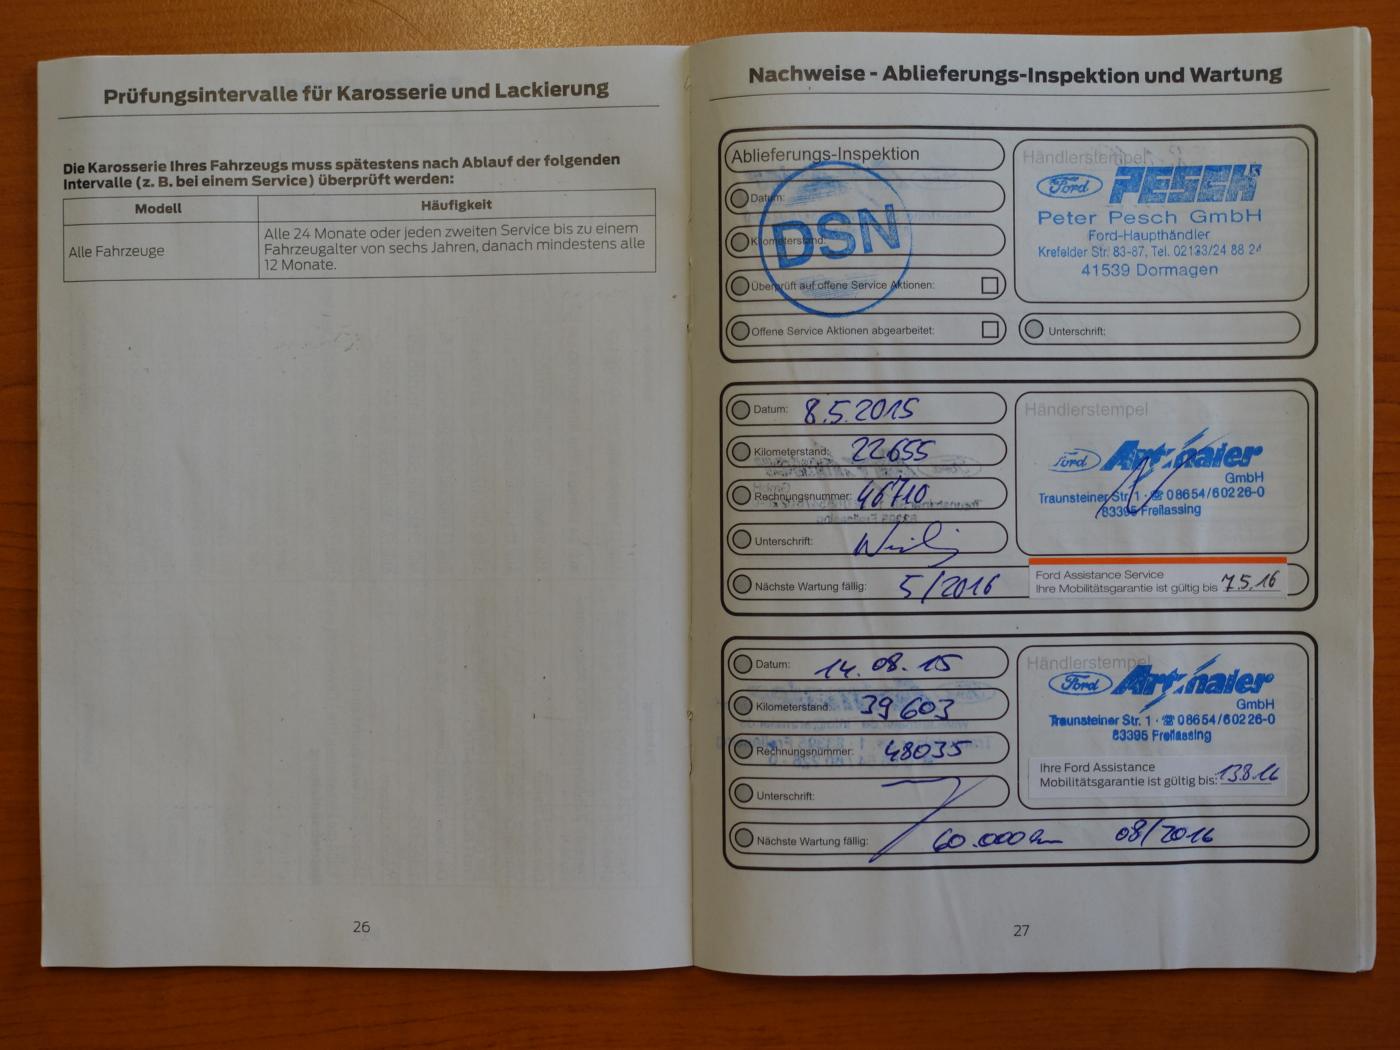 Prüfungsintervalle für Karosserie und Lackierung
Die Karosserie Ihres Fahrzeugs muss spätestens nach Ablauf der folgenden
Intervalle (z. B. bei einem Service) überprüft werden:
Modell
Häufigkeit
Alle Fahrzeuge
Alle 24 Monate oder jeden zweiten Service bis zu einem
Fahrzeugalter von sechs Jahren, danach mindestens alle
12 Monate.
26
Nachweise - Ablieferungs-Inspektion und Wartung
Ablieferungs-Inspektion
Datum:
Kilometerstand:
DSN
Überprüft auf offene Service Aktionen:
Offene Service Aktionen abgearbeitet:
Händlerstempel
Ford PESCH
Peter Pesch GmbH
Ford-Haupthändler
Krefelder Str. 83-87, Tel. 02133/24 88 24
41539 Dormagen
Unterschrift:
Datum: 8.5.2015
Kilometerstand: 22655
Rechnungsnummer: 46710
Unterschrift:
Nächste Wartung fällig: 5/2016
Händlerstempel
Ford Artmaier
GmbH
Traunsteiner Str. 1 · ☎ 08654/60226-0
83395 Freilassing
Ford Assistance Service
Ihre Mobilitätsgarantie ist gültig bis 7.5.16
Datum: 14.08.15
Kilometerstand: 39603
Rechnungsnummer: 48035
Unterschrift:
Nächste Wartung fällig: 60.000km 08/2016
Händlerstempel
Ford Artmaier
GmbH
Traunsteiner Str. 1 · ☎ 08654/60226-0
83395 Freilassing
Ihre Ford Assistance
Mobilitätsgarantie ist gültig bis: 13.8.16
27